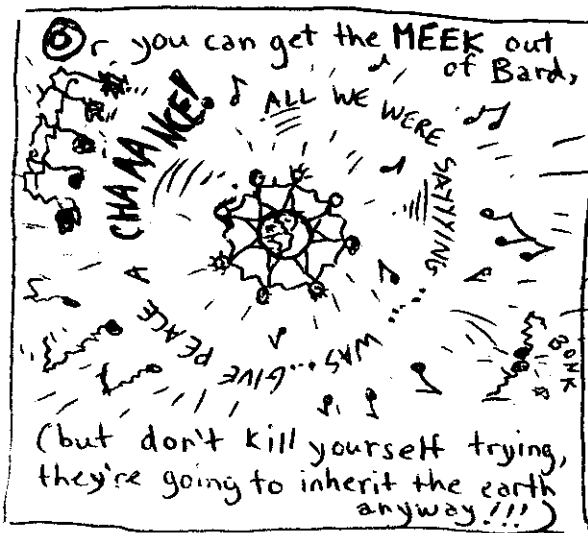 Or you can get the MEEK out
of Bard,
ALL WE WERE
SAYYING....
WAS...GIVE
PEACE A
CHAAANCE!
BONK
(but don't kill yourself trying,
they're going to inherit the earth
anyway!!!)